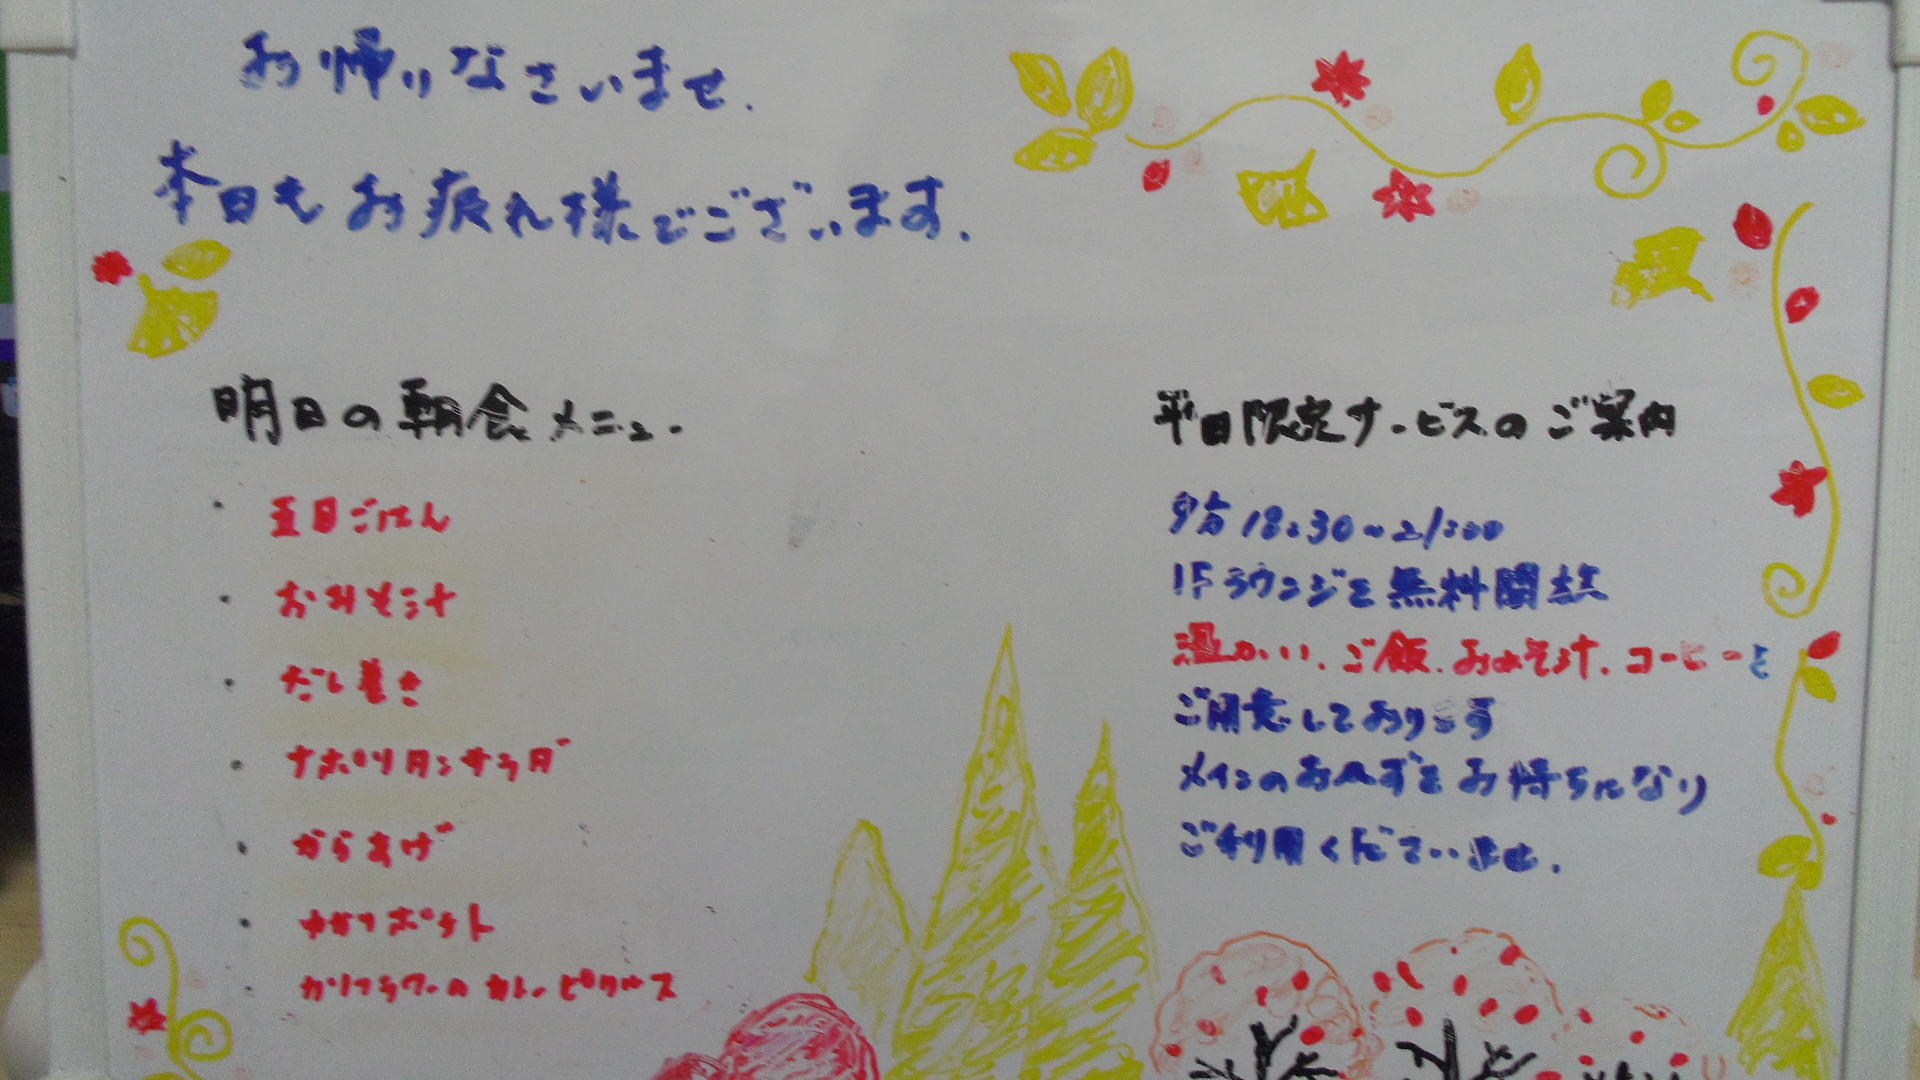 お帰りなさいませ.
本日もお疲れ様でございます.
明日の朝食メニュー
・ 五目ごはん
・ おみそ汁
・ だし巻き
・ ナポリタンサラダ
・ からあげ
・ ポテト
・ カリフラワーのカレーピクルス
平日限定サービスのご案内
夕方 18:30~21:00
1Fラウンジを無料開放
温かい、ご飯、おみそ汁、コーヒーを
ご用意しております
メインのおかずをお待ちになり
ご利用くださいませ.